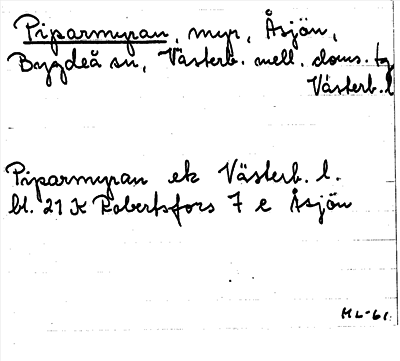 Piparmyran, myr, Åsjön,
Bygdeå sn, Västerb. mell. doms. tg
Västerb. l
Piparmyran ek Västerb. l.
bl. 21 K Robertsfors 7 e Åsjön
ML-61